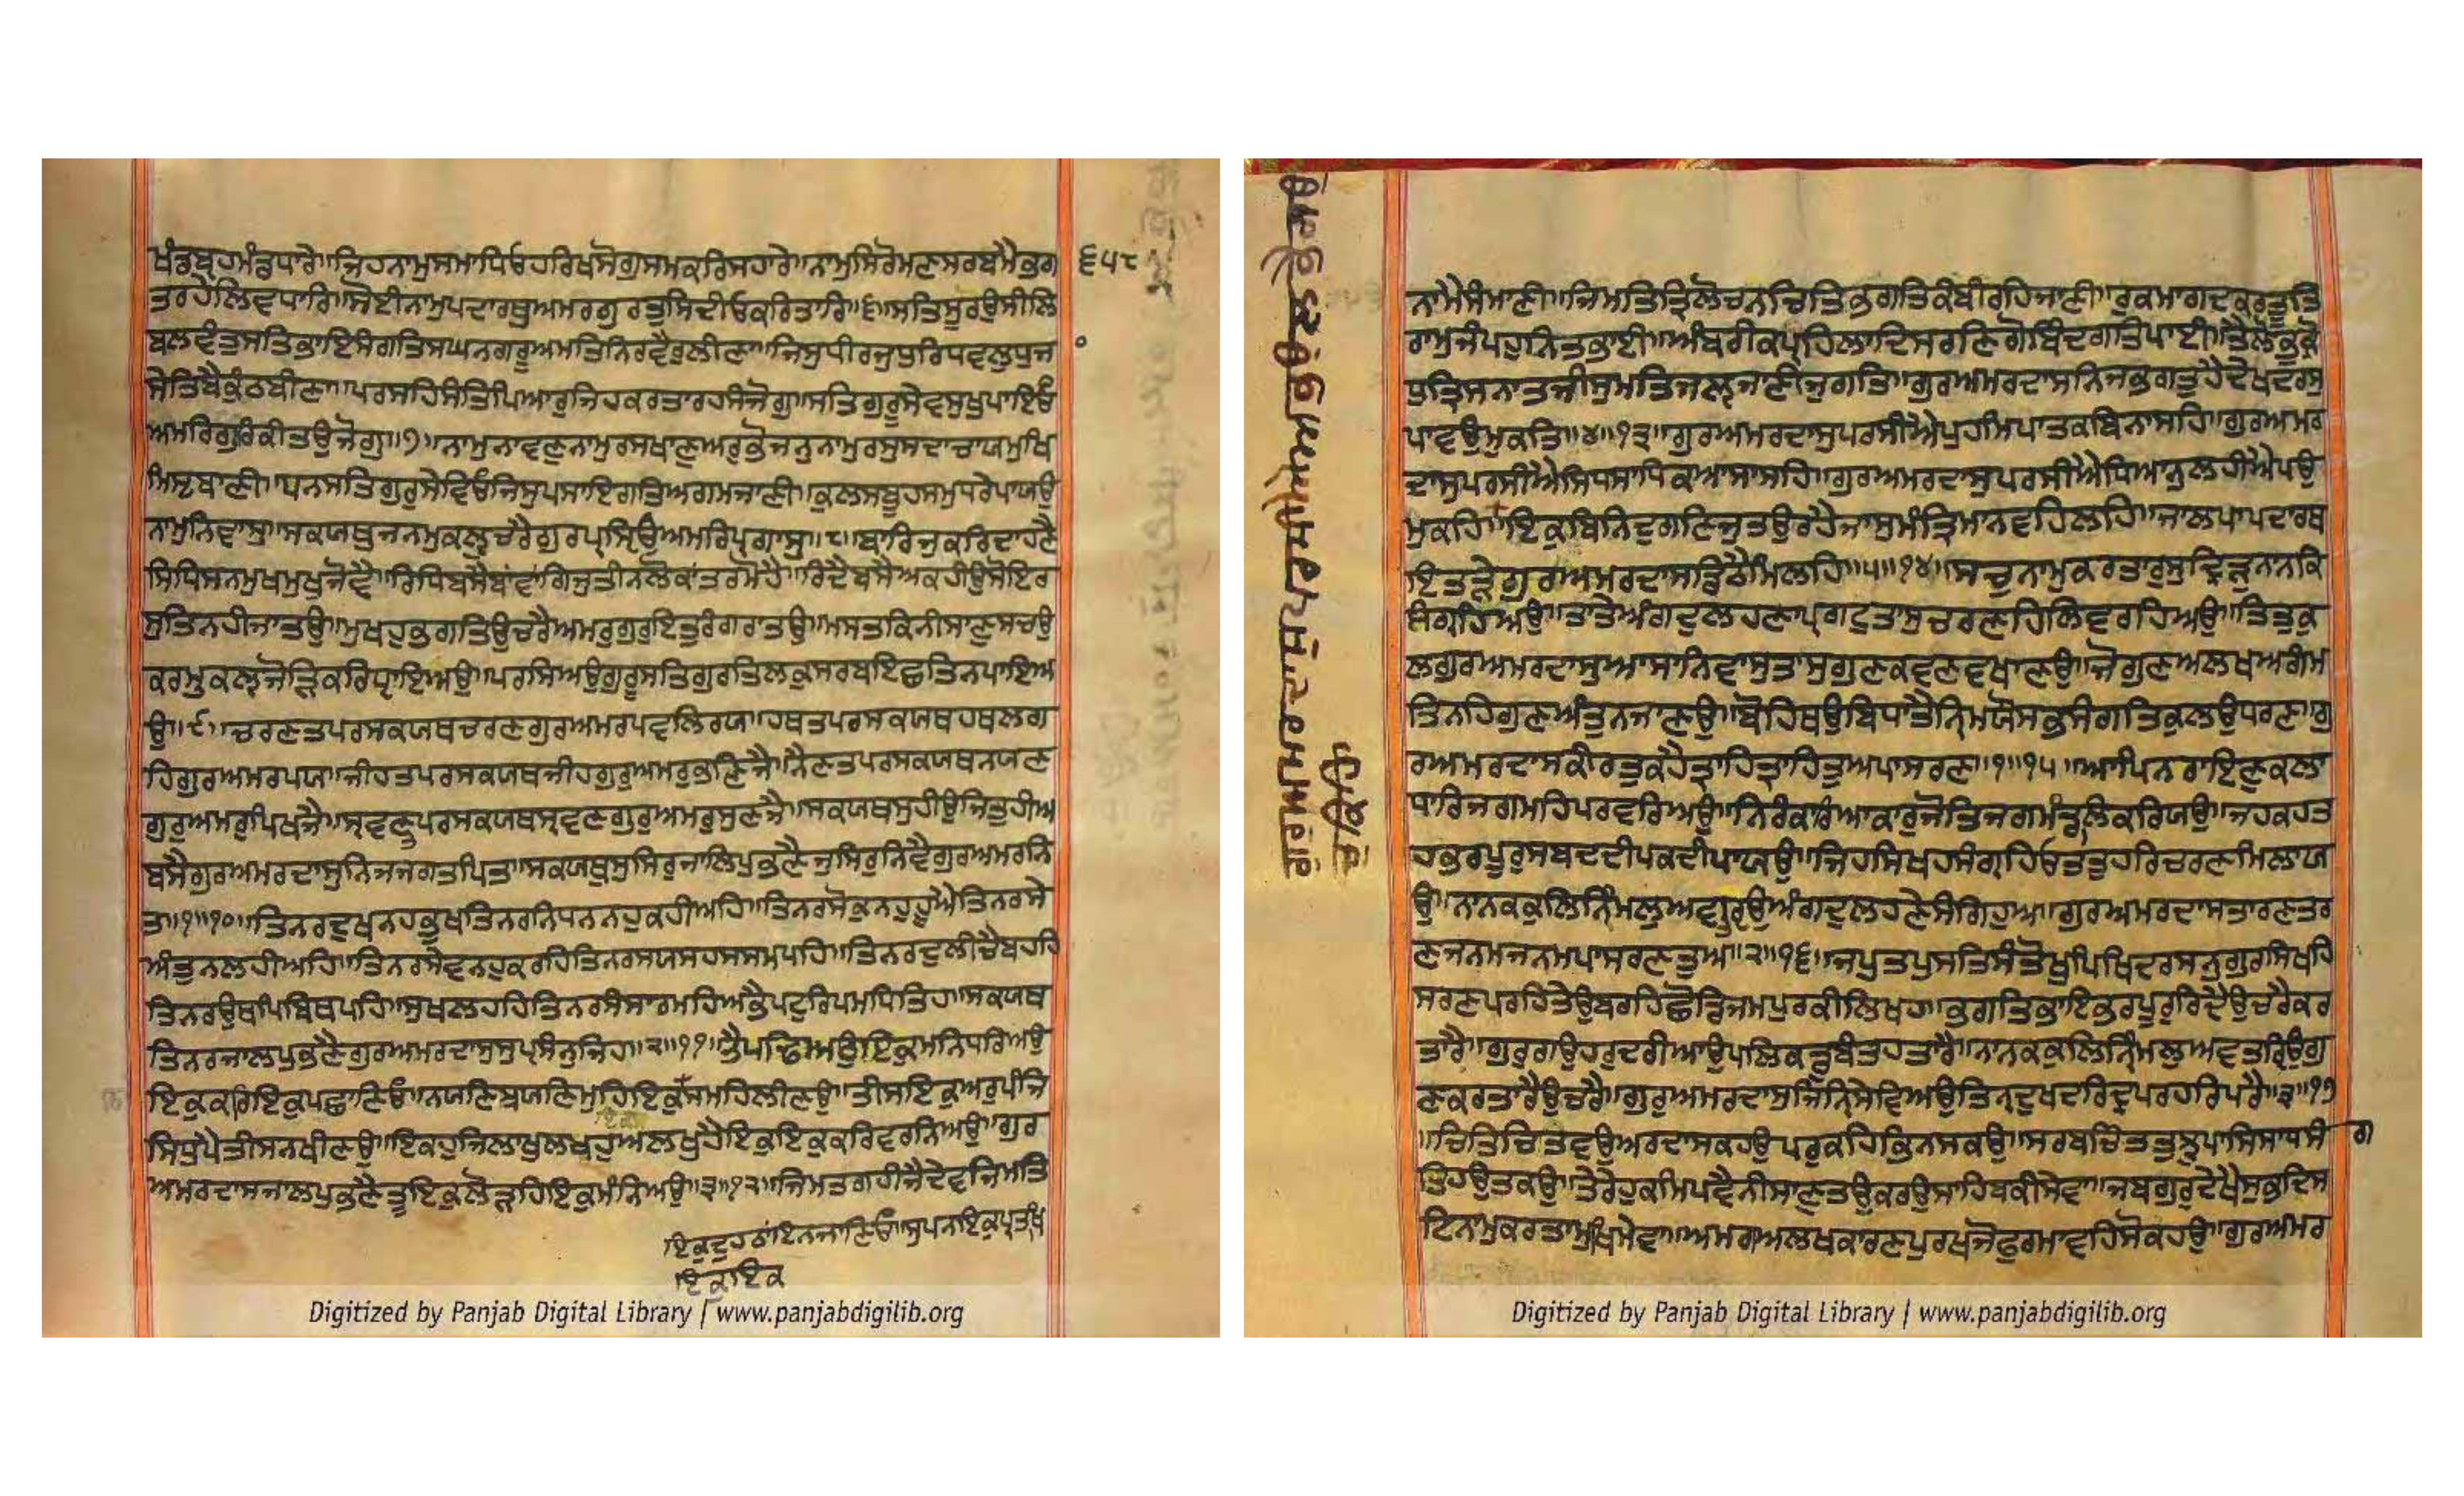 ਖੰਡਬ੍ਰਹਮੰਡਧਾਰੇ॥ਜਿਹਨਾਮੁਸਮਾਧਿਓਹਰਿਖਸੋਗੁਸਮਕਰਿਸਹਾਰੇ॥ਨਾਮੁਸਿਰੋਮਣਿਸਰਬਮੈਭਗ ੬੫੮
ਤਰਹੇਲਿਵਧਾਰਿ॥ਸੋਈਨਾਮੁਪਦਾਰਥੁਅਮਰਗੁਰਤੁਸਿਦੀਓਕਰਿਤਾਰਿ॥੬॥ਸਤਿਸੂਰਉਸੀਲਿ
ਬਲਵੰਤੁਸਤਿਭਾਇਸੰਗਤਿਸਘਨਗਰੂਅਮਤਿਨਿਰਵੈਰੁਲੀਣਾ॥ਜਿਸੁਧੀਰਜੁਧੁਰਿਧਵਲੁਧੁਜ
ਸੇਤਿਬੈਕੁੰਠਬੀਣਾ॥ਪਰਸਹਿਸੰਤਿਪਿਆਰੁਜਿਹਕਰਤਾਰਹਸੰਜੋਗੁ॥ਸਤਿਗੁਰੂਸੇਵਸੁਖੁਪਾਇਓ
ਅਮਰਿਗੁਰਿਕੀਤਉਜੋਗੁ॥੭॥ਨਾਮੁਨਾਵਣੁਨਾਮੁਰਸਖਾਣੁਅਰੁਭੋਜਨੁਨਾਮੁਰਸੁਸਦਾਚਾਯਮੁਖਿ
ਮਿਸ੍ਟਬਾਣੀ॥ਧਨਸਤਿਗੁਰੁਸੇਵਿਓਜਿਸੁਪਸਾਇਗਤਿਅਗਮਜਾਣੀ॥ਕੁਲਸੰਬੂਹਸਮੁਧਰੇਪਾਯਉ
ਨਾਮੁਨਿਵਾਸੁ॥ਸਕਯਥੁਜਨਮੁਕਲੁਚਰੈਗੁਰਪ੍ਰਸ੍ਹਿਉਅਮਰਿਪ੍ਰਗਾਸੁ॥੮॥ਬਾਰਿਜੁਕਰਿਦਾਹਣੈ
ਸਿਧਿਸਨਮੁਖਮੁਖੁਜੋਵੈ॥ਰਿਧਿਬਸੈਬਾਂਵਾਂਗਿਜੁਤੀਨਲੋਕਾਂਤਰਮੋਹੈ॥ਰਿਦੈਬਸੈਅਕਹੀਉਸੋਇਰ
ਸੁਤਿਨਹੀਜਾਤਉ॥ਮੁਖਹੁਭਗਤਿਉਚਰੈਅਮਰੁਗੁਰੁਇਤੁਰੰਗਰਾਤਉ॥ਮਸਤਕਿਨੀਸਾਣੁਸਚਉ
ਕਰਮੁਕਲ੍ਹਜੋੜਿਕਰਿਧ੍ਹਾਇਅਉ॥ਪਰਸਿਅਉਗੁਰੂਸਤਿਗੁਰਤਿਲਕੁਸਰਬਇਛਤਿਨਪਾਇਅ
ਉ॥੯॥ਚਰਣਤਪਰਸਕਯਥਚਰਣਗੁਰਅਮਰਪਵਲਿਰਯ॥ਹਥਤਪਰਸਕਯਥਹਥਲਗ
ਹਿਗੁਰਅਮਰਪਯ॥ਜੀਹਤਪਰਸਕਯਥਜੀਹਗੁਰੁਅਮਰੁਭਣਿਜੈ॥ਨੈਣਤਪਰਸਕਯਥਨਯਣ
ਗੁਰੁਅਮਰੁਪਿਖਿਜੈ॥ਸ੍ਰਵਣਤਪਰਸਕਯਥਸ੍ਰਵਣਗੁਰੁਅਮਰੁਸੁਣਿਜੈ॥ਸਕਯਥਸੁਹੀਉਜਿਤੁਹੀਅ
ਬਸੈਗੁਰਅਮਰਦਾਸੁਨਿਜਜਗਤਪਿਤ॥ਸਕਯਥੁਸੁਸਿਰੁਜਾਲਪੁਭਣੈਜੁਸਿਰੁਨਿਵੈਗੁਰਅਮਰਨਿ
ਤ॥੧॥੧੦॥ਤਿਨਰਦੁਖਨਹਭੁਖਤਿਨਰਨਿਧਨਨਹੁਕਹੀਅਹਿ॥ਤਿਨਰਸੋਕੁਨਹੁਹੂਐਤਿਨਰਸੇ
ਅੰਤੁਨਲਹੀਅਹਿ॥ਤਿਨਰਸੇਵਨਹੁਕਰਹਿਤਿਨਰਸਯਸਹਸਸਮਪਹਿ॥ਤਿਨਰਦੁਲੀਚੈਬਹਹਿ
ਤਿਨਰਉਥਪਿਬਿਥਪਹਿ॥ਸੁਖਲਹਹਿਤਿਨਰਸੰਸਾਰਮਹਿਅਭੈਪਟੁਰਿਪਮਧਿਤਿਹ॥ਸਕਯਥ
ਤਿਨਰਜਾਲਪੁਭਣੈਗੁਰਅਮਰਦਾਸੁਸੁਪ੍ਰਸੰਨੁਜਿਹ॥੨॥੧੧॥ਤੈਪਢਿਅਉਇਕੁਮਨਿਧਰਿਅਉ
ਇਕੁਕਰਿਇਕੁਪਛਾਣਿਓ॥ਨਯਣਿਬਯਣਿਮੁਹਿਇਕੁਸਮਹਿਲੀਣਉ॥ਤੀਸਇਕੁਅਰੁਪੰਜਿ
ਸਿਧੁਪੈਤੀਸਨਖੀਣਉ॥ਇਕਹੁਜਿਲਾਖੁਲਖਹੁਅਲਖੁਹੈਇਕੁਇਕੁਕਰਿਵਰਨਿਅਉ॥ਗੁਰ
ਅਮਰਦਾਸਜਾਲਪੁਭਣੈਤੂਇਕੁਲੋੜਹਿਇਕੁਮੰਨਿਅਉ॥੩॥੧੨॥ਜਿਮਤਗਹੀਜੈਦੇਵਜਿਮਤਿ
ਇਕੁਦੁਹਠਾਂਇਨਜਾਣਿਓ॥ਸੁਪਨਇਕੁਪ੍ਰਤਖਿ
ਇਕੁਇਕ
Digitized by Panjab Digital Library | www.panjabdigilib.org
ਗੁਰੁਅਮਰਦਾਸੁਪਰਸੀਐਅਭਉਲਭੈਗਉ
ਚੁਕਿਹਿ
ਨਾਮੈਸੰਮਾਣੀ॥ਜਿਮਤਿਤ੍ਰਿਲੋਚਨਚਿਤਿਭਗਤਿਕੰਬੀਰਹਿਜਾਣੀ॥ਰੁਕਮਾਗਦਕਰਤੂਤਿ
ਰਾਮੁਜੰਪਹੁਨਿਤਭਾਈ॥ਅੰਬਰੀਕਪ੍ਰਹਿਲਾਦਿਸਰਣਿਗੋਬਿੰਦਗਤਿਪਾਈ॥ਤੈਲੋਭੁਕ੍ਰੋ
ਧੁਤ੍ਰਿਸਨਾਤਜੀਸੁਮਤਿਜਲ੍ਹਜਾਣੀਜੁਗਤਿ॥ਗੁਰਅਮਰਦਾਸਨਿਜਭਗਤੁਹੈਦੇਖਦਰਸੁ
ਪਾਵਉਮੁਕਤਿ॥੪॥੧੩॥ਗੁਰਅਮਰਦਾਸੁਪਰਸੀਐਪੁਹਮਿਪਾਤਕਬਿਨਾਸਹਿ॥ਗੁਰਅਮਰ
ਦਾਸੁਪਰਸੀਐਸਿਧਸਾਧਿਕਆਸਾਸਹਿ॥ਗੁਰਅਮਰਦਾਸੁਪਰਸੀਐਧਿਆਨੁਲਹੀਐਪਉ
ਮੁਕਹਿ॥ਇਕੁਬਿਨਿਦੁਗਣਿਜੁਤਉਰਹੈਜਾਸੁਮੰਤ੍ਰਿਮਾਨਵਹਿਲਹਿ॥ਜਾਲਪਾਪਦਾਰਥ
ਇਤੜੇਗੁਰਅਮਰਦਾਸਡਿਠੈਮਿਲਹਿ॥੫॥੧੪॥ਸਚੁਨਾਮੁਕਰਤਾਰੁਸੁਦ੍ਰਿੜੁਨਾਨਕਿ
ਸੰਗ੍ਰਹਿਅਉ॥ਤਾਤੇਅੰਗਦੁਲਹਣਾਪ੍ਰਗਟੁਤਾਸੁਚਰਣਹਿਲਿਵਰਹਿਅਉ॥ਤਿਤੁਕੁ
ਲਗੁਰਅਮਰਦਾਸੁਆਸਾਨਿਵਾਸੁਤਾਸੁਗੁਣਕਵਣਵਖਾਣਉ॥ਜੋਗੁਣਅਲਖਅਗੰਮ
ਤਿਨਹਿਗੁਣਅੰਤੁਨਜਾਣਉ॥ਬੋਹਿਥਉਬਿਧਾਤੈਨਿਰਮਯੌਸਭਸੰਗਤਿਕੁਲਉਧਰਣ॥ਗੁ
ਰਅਮਰਦਾਸਕੀਰਤੁਕਹੈਤ੍ਰਾਹਿਤ੍ਰਾਹਿਤੁਅਪਾਸਰਣ॥੧॥੧੫॥ਆਪਿਨਰਾਇਣੁਕਲਾ
ਧਾਰਿਜਗਮਹਿਪਰਵਰਿਅਉ॥ਨਿਰੰਕਾਰਿਆਕਾਰੁਜੋਤਿਜਗਮੰਡਲਿਕਰਿਯਉ॥ਜਹਕਹਤ
ਹਭਰਪੁਰੁਸਬਦਦੀਪਕਦੀਪਾਯਉ॥ਜਿਹਸਿਖਹਸੰਗ੍ਰਹਿਓਤਤੁਹਰਿਚਰਣਮਿਲਾਯ
ਉ॥ਨਾਨਕਕੁਲਿਨਿੰਮਲੁਅਵਤ੍ਰਿਉਅੰਗਦਲਹਣੇਸੰਗਿਹੁਅ॥ਗੁਰਅਮਰਦਾਸਤਾਰਣਤਰ
ਣਜਨਮਜਨਮਪਾਸਰਣਤੁਅ॥੨॥੧੬॥ਜਪੁਤਪੁਸਤਿਸੰਤੋਖੁਪਿਖਿਦਰਸਨੁਗੁਰਸਿਖਹਿ
ਸਰਣਪਰਹਿਤੇਉਬਰਹਿਛੋਡਿਜਮਪੁਰਕੀਲਿਖਹ॥ਭਗਤਿਭਾਇਭਰਪੁਰੁਰਿਦੈਉਚਰੈਕਰ
ਤਾਰੈ॥ਗੁਰੁਗਉਹਰੁਦਰੀਆਉਪਲਿਕਡੁਬੰਤਹਤਾਰੈ॥ਨਾਨਕਕੁਲਿਨਿੰਮਲੁਅਵਤਰ੍ਹਿਉਗੁ
ਣਕਰਤਾਰੈਉਚਰੈ॥ਗੁਰੁਅਮਰਦਾਸੁਜਿਨਿਸੇਵਿਅਉਤਿਨ੍ਹਦੁਖਦਰਿਦ੍ਰੁਪਰਹਰਿਪਰੈ॥੩॥੧੭
॥ਚਿਤਿਚਿਤਵਉਅਰਦਾਸਕਹਉਪਰੁਕਹਿਭਿਨਸਕਉ॥ਸਰਬਚਿੰਤਤੁਝੁਪਾਸਿਸਾਧਸੰ ਗ
ਤਿਹਉਤਕਉ॥ਤੇਰੈਹੁਕਮਿਪਵੈਨੀਸਾਣੁਤਉਕਰਉਸਾਹਿਬਕੀਸੇਵਾ॥ਜਬਗੁਰੁਦੇਖੈਸੁਭਦਿਸ
ਟਿਨਾਮੁਕਰਤਾਮੁਖਿਮੇਵਾ॥ਅਗਮਅਲਖਕਾਰਣਪੁਰਖਜੋਫੁਰਮਾਵਹਿਸੋਕਹਉ॥ਗੁਰਅਮਰ
Digitized by Panjab Digital Library | www.panjabdigilib.org